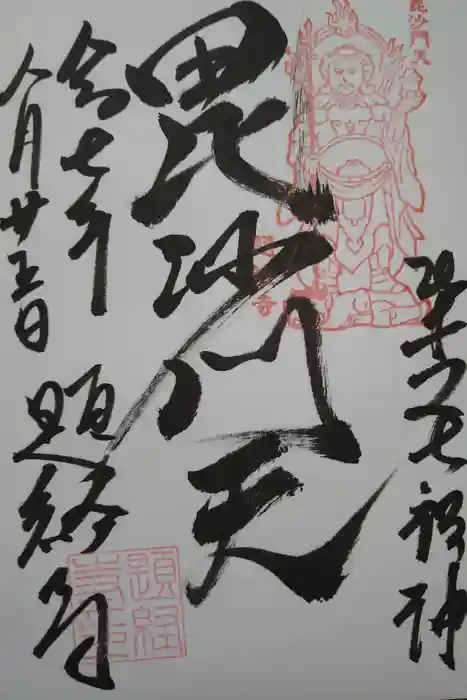 毘沙門天
柴又七福神
毘沙門天
令和七年
八月廿五日
題経寺
題経